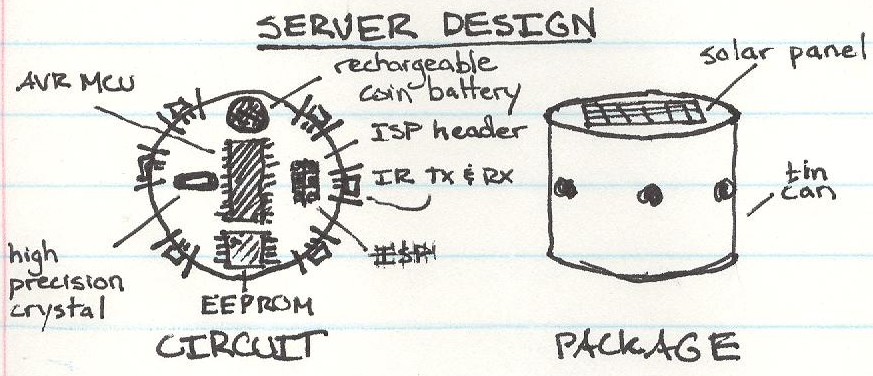 SERVER DESIGN
AVR MCU
rechargeable
coin battery
ISP header
IR TX & RX
high
precision
crystal
EEPROM
CIRCUIT
solar panel
tin
can
PACKAGE